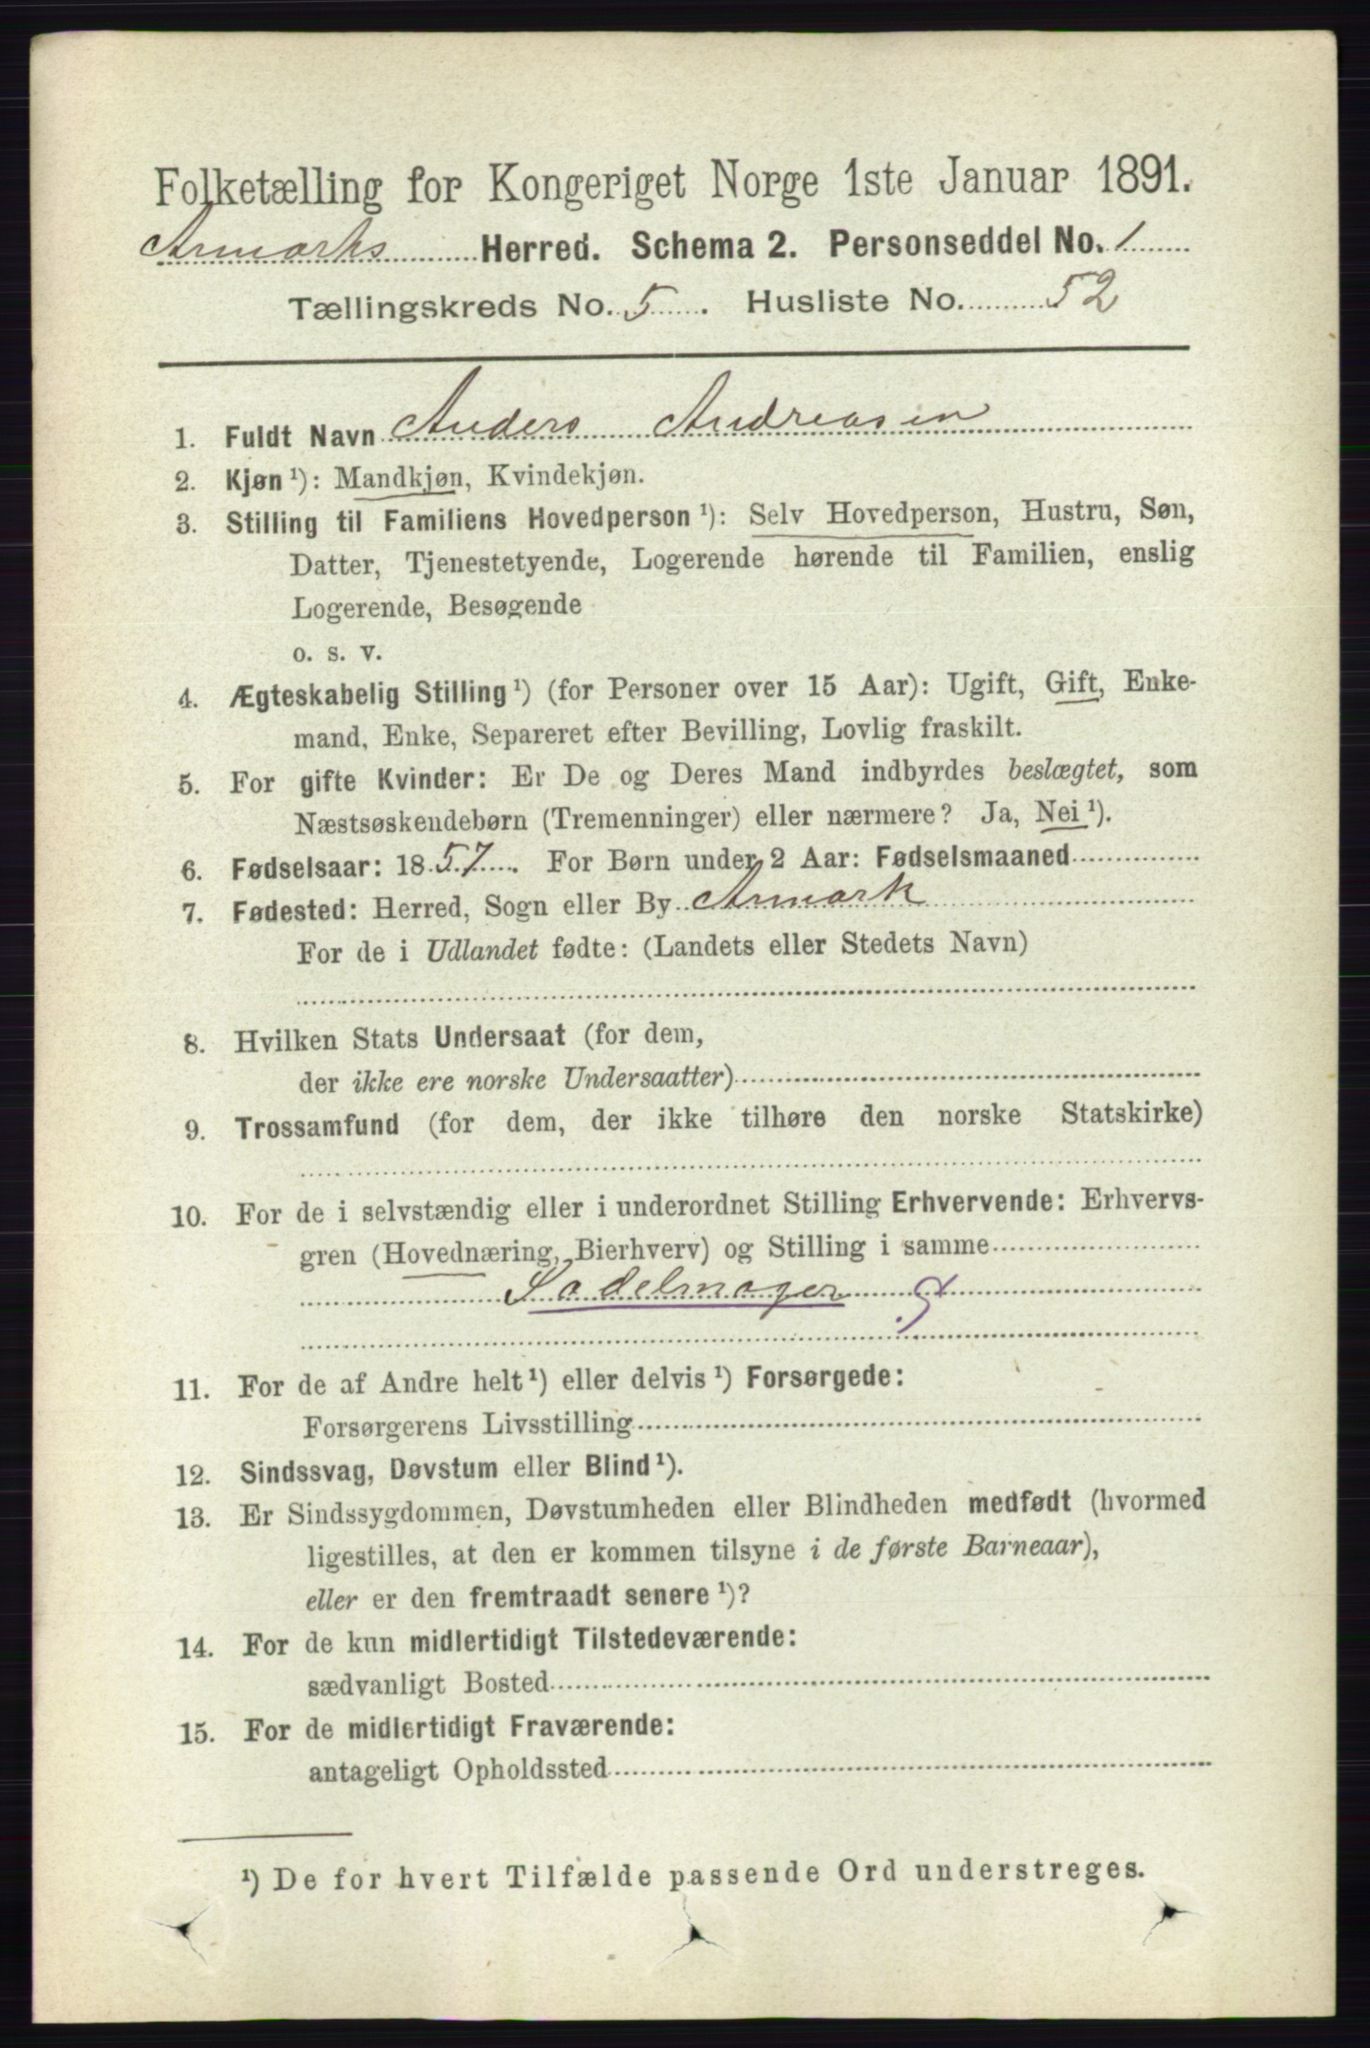 Folketælling for Kongeriget Norge 1ste Januar 1891.
Armarks Herred. Schema 2. Personseddel No. 1
Tællingskreds No. 5. Husliste No. 52
1. Fuldt Navn Anders Andreasen
2. Kjøn ¹): Mandkjøn, Kvindekjøn.
3. Stilling til Familiens Hovedperson ¹): Selv Hovedperson, Hustru, Søn,
Datter, Tjenestetyende, Logerende hørende til Familien, enslig
Logerende, Besøgende
o. s. v.
4. Ægteskabelig Stilling ¹) (for Personer over 15 Aar): Ugift, Gift, Enke-
mand, Enke, Separeret efter Bevilling, Lovlig fraskilt.
5. For gifte Kvinder: Er De og Deres Mand indbyrdes beslægtet, som
Næstsøskendebørn (Tremenninger) eller nærmere? Ja, Nei ¹).
6. Fødselsaar: 1857. For Børn under 2 Aar: Fødselsmaaned
7. Fødested: Herred, Sogn eller By Armark
For de i Udlandet fødte: (Landets eller Stedets Navn)
8. Hvilken Stats Undersaat (for dem,
der ikke ere norske Undersaatter)
9. Trossamfund (for dem, der ikke tilhøre den norske Statskirke)
10. For de i selvstændig eller i underordnet Stilling Erhvervende: Erhvervs-
gren (Hovednæring, Bierhverv) og Stilling i samme
Sadelmager
11. For de af Andre helt ¹) eller delvis ¹) Forsørgede:
Forsørgerens Livsstilling
12. Sindssvag, Døvstum eller Blind ¹).
13. Er Sindssygdommen, Døvstumheden eller Blindheden medfødt (hvormed
ligestilles, at den er kommen tilsyne i de første Barneaar),
eller er den fremtraadt senere ¹)?
14. For de kun midlertidigt Tilstedeværende:
sædvanligt Bosted
15. For de midlertidigt Fraværende:
antageligt Opholdssted
¹) De for hvert Tilfælde passende Ord understreges.